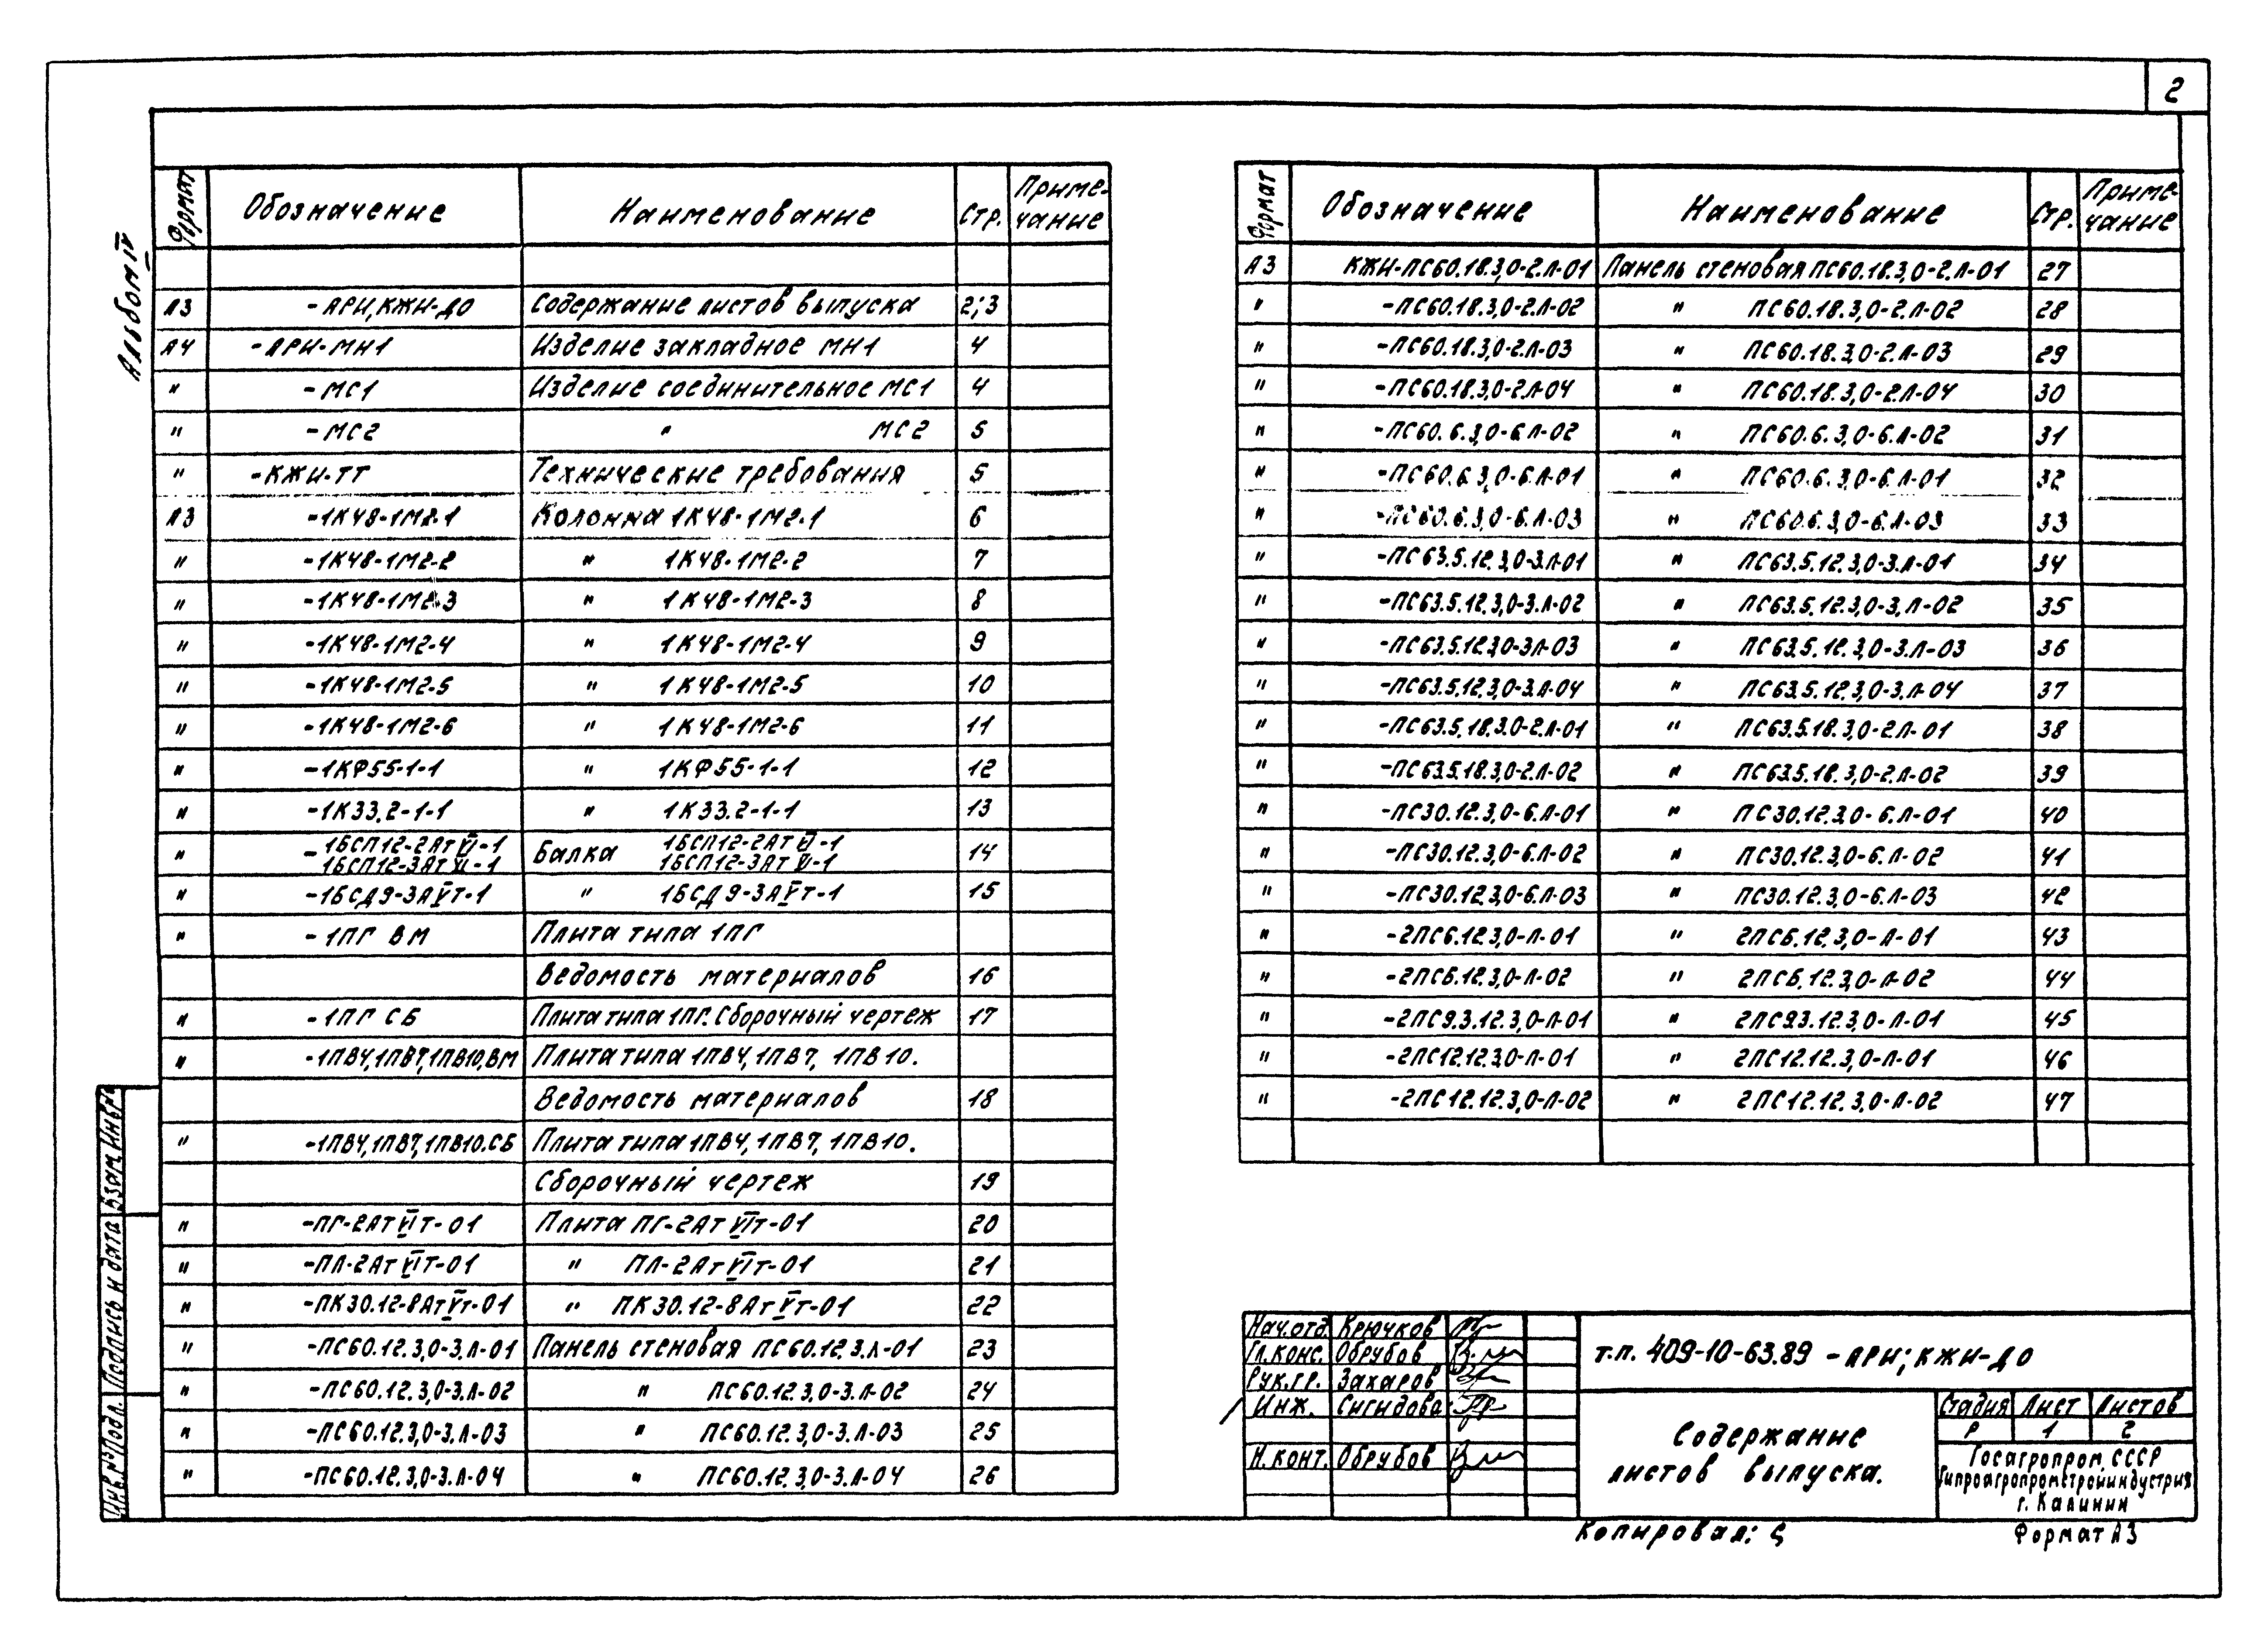 2
Альбом IV
Формат Обозначение Наименование Стр. Приме-
чание
А3 -АРИ,КЖИ-ДО Содержание листов выпуска 2;3
А4 -АРИ-МН1 Изделие закладное МН1 4
" -МС1 Изделие соединительное МС1 4
" -МС2 " МС2 5
" -КЖИ-ТТ Технические требования 5
А3 -1К48-1М2-1 Колонна 1К48-1М2-1 6
" -1К48-1М2-2 " 1К48-1М2-2 7
" -1К48-1М2-3 " 1К48-1М2-3 8
" -1К48-1М2-4 " 1К48-1М2-4 9
" -1К48-1М2-5 " 1К48-1М2-5 10
" -1К48-1М2-6 " 1К48-1М2-6 11
" -1КФ55-1-1 " 1КФ55-1-1 12
" -1К33.2-1-1 " 1К33.2-1-1 13
" -1БСП12-2АтVI-1 Балка 1БСП12-2АтVI-1 14
1БСП12-3АтVI-1 1БСП12-3АтVI-1
" -1БСД9-3АVт-1 " 1БСД9-3АVт-1 15
" -1ПГ ВМ Плита типа 1ПГ
Ведомость материалов 16
" -1ПГ СБ Плита типа 1ПГ. Сборочный чертеж 17
" -1ПВ4,1ПВ7,1ПВ10,ВМ Плита типа 1ПВ4, 1ПВ7, 1ПВ10.
Ведомость материалов 18
" -1ПВ4,1ПВ7,1ПВ10.СБ Плита типа 1ПВ4, 1ПВ7, 1ПВ10.
Сборочный чертеж 19
" -ПГ-2АтVIт-01 Плита ПГ-2АтVIт-01 20
" -ПЛ-2АтVIт-01 " ПЛ-2АтVIт-01 21
" -ПК30.12-8АтVт-01 " ПК30.12-8АтVт-01 22
" -ПС60.12.3,0-3.Л-01 Панель стеновая ПС60.12.3.Л-01 23
" -ПС60.12.3,0-3.Л-02 " ПС60.12.3,0-3.Л-02 24
" -ПС60.12.3,0-3.Л-03 " ПС60.12.3,0-3.Л-03 25
" -ПС60.12.3,0-3.Л-04 " ПС60.12.3,0-3.Л-04 26
Формат Обозначение Наименование Стр. Приме-
чание
А3 КЖИ-ПС60.18.3,0-2.Л-01 Панель стеновая ПС60.18.3,0-2.Л-01 27
" -ПС60.18.3,0-2.Л-02 " ПС60.18.3,0-2.Л-02 28
" -ПС60.18.3,0-2.Л-03 " ПС60.18.3,0-2.Л-03 29
" -ПС60.18.3,0-2.Л-04 " ПС60.18.3,0-2.Л-04 30
" -ПС60.6.3,0-6.Л-02 " ПС60.6.3,0-6.Л-02 31
" -ПС60.6.3,0-6.Л-01 " ПС60.6.3,0-6.Л-01 32
" -ПС60.6.3,0-6.Л-03 " ПС60.6.3,0-6.Л-03 33
" -ПС63.5.12.3,0-3.Л-01 " ПС63.5.12.3,0-3.Л-01 34
" -ПС63.5.12.3,0-3.Л-02 " ПС63.5.12.3,0-3.Л-02 35
" -ПС63.5.12.3,0-3Л-03 " ПС63.5.12.3,0-3.Л-03 36
" -ПС63.5.12.3,0-3.Л-04 " ПС63.5.12.3,0-3.Л-04 37
" -ПС63.5.18.3.0-2.Л-01 " ПС63.5.18.3,0-2.Л-01 38
" -ПС63.5.18.3,0-2.Л-02 " ПС63.5.18.3,0-2.Л-02 39
" -ПС30.12.3,0-6.Л-01 " ПС30.12.3,0-6.Л-01 40
" -ПС30.12.3,0-6.Л-02 " ПС30.12.3,0-6.Л-02 41
" -ПС30.12.3,0-6.Л-03 " ПС30.12.3,0-6.Л-03 42
" -2ПС6.12.3,0-Л-01 " 2ПС6.12.3,0-Л-01 43
" -2ПС6.12.3,0-Л-02 " 2ПС6.12.3,0-Л-02 44
" -2ПС9.3.12.3,0-Л-01 " 2ПС9.3.12.3,0-Л-01 45
" -2ПС12.12.3,0-Л-01 " 2ПС12.12.3,0-Л-01 46
" -2ПС12.12.3,0-Л-02 " 2ПС12.12.3,0-Л-02 47
Инв.№ подл. Подпись и дата Взам.Инв.№
Нач.отд. Крючков
Гл.конс. Обрубов
Рук.гр. Захаров
Инж. Сигидова
Н.конт. Обрубов
т.п. 409-10-63.89 -АРИ; КЖИ-ДО
Содержание
листов выпуска.
Стадия Лист Листов
Р 1 2
Госагропром СССР
Гипроагропромстройиндустрия
г. Калинин
Копировал:
Формат А3